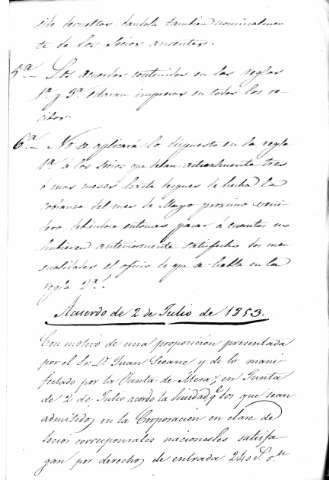 sido devueltas dandole tambien nominalmen-
te de los Socios ausentes.
5ª Los acuerdos contenidos en las reglas
1ª y 3ª estaran impresas en todos los re-
cibos.
6ª No se aplicará lo dispuesto en la regla
1ª á los Socios que deban actualmente tres
ó mas meses hasta despues de hecha la
cobranza del mes de Mayo proximo veni-
dero debiendose entonces pasar á cuantos no
hubieren anteriormente satisfecho sus men-
sualidades el oficio de que se habla en la
regla 2ª.
Acuerdo de 2 de Julio de 1853.
Con motivo de una proposicion presentada
por el Sr. Dn. Juan y de lo mani-
festado por la Junta de Mesa; en Junta
de 2 de Julio acordó la Sociedad q. los que sean
admitidos en la Corporacion en clase de
Socios corresponsales nacionales satisfa-
gan por derechos de entrada 240 rs. vn